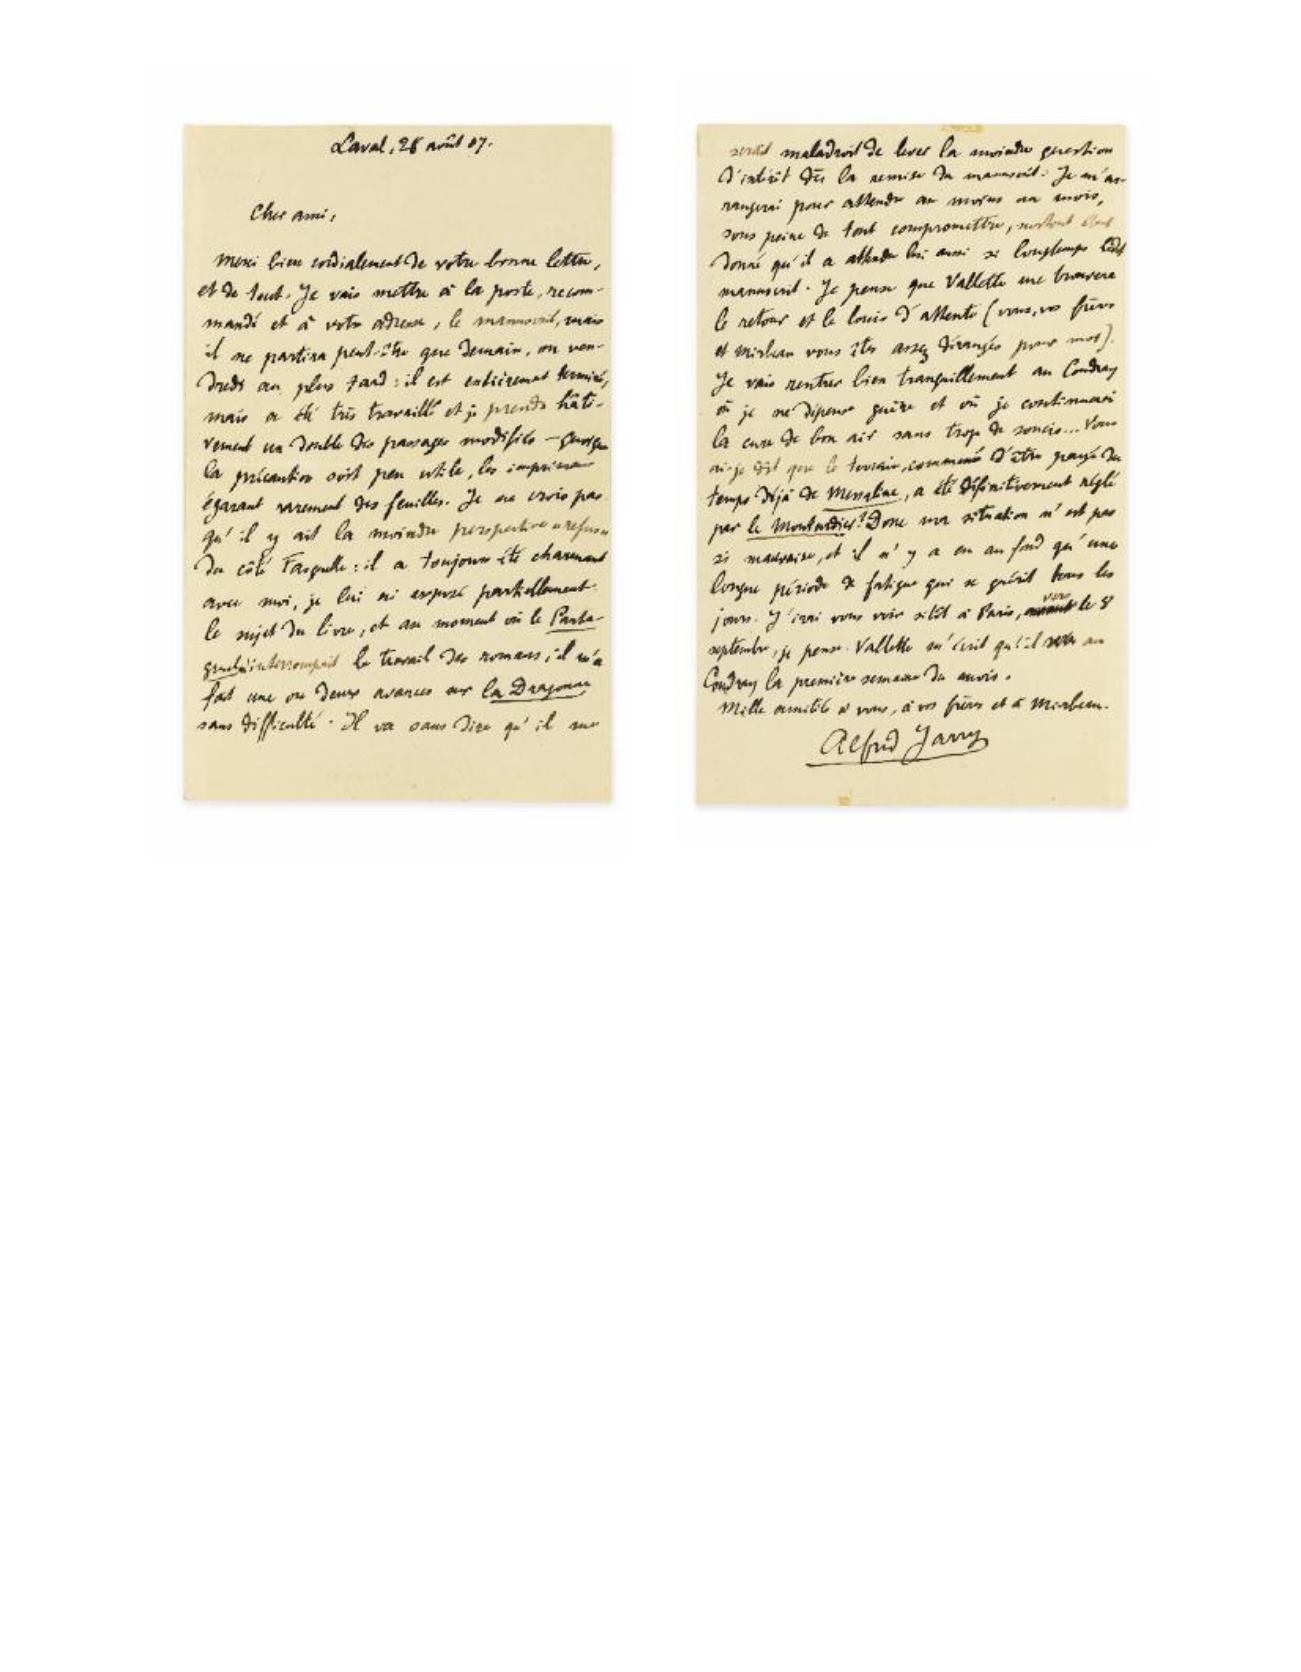 Laval, 28 août 07.
Cher ami,
Merci bien cordialement de votre bonne lettre,
et de tout. Je vais mettre à la poste, recom-
mandé et à votre adresse, le manuscrit, mais
il ne partira peut-être que demain, ou ven-
dredi au plus tard : il est entièrement terminé,
mais a été très travaillé et je prends hâti-
vement un double des passages modifiés — quoique
la précaution soit peu utile, les imprimeurs
égarant rarement des feuilles. Je ne crois pas
qu'il y ait la moindre perspective refus
du côté Fasquelle : il a toujours été charmant
avec moi, je lui ai exposé partiellement
le sujet du livre, et au moment où le Panta-
gruel interrompait le travail des romans, il m'a
fait une ou deux avances sur la Dragonne
sans difficulté. Il va sans dire qu'il me
serait maladroit de lever la moindre question
d'intérêt dès la remise du manuscrit. Je m'ar-
rangerai pour attendre au moins un mois,
sous peine de tout compromettre, surtout étant
donné qu'il a attendu lui aussi si longtemps ledit
manuscrit. Je pense que Vallette me trouvera
le retour et le louis d'attente (vous, vos frères
et Mirbeau vous êtes assez dérangés pour moi).
Je vais rentrer bien tranquillement au Coudray
où je ne dépense guère et où je continuerai
la cure de bon air sans trop de soucis... Vous
ai-je dit que le terrain, commencé d'être payé du
temps déjà de Messaline, a été définitivement réglé
par le Moutardier? Donc ma situation n'est pas
si mauvaise, et il n'y a eu au fond qu'une
longue période de fatigue qui se guérit tous les
jours. J'irai vous voir sitôt à Paris, avant vers le 8
septembre, je pense. Vallette m'écrit qu'il sera au
Coudray la première semaine du mois.
Mille amitiés à vous, à vos frères et à Mirbeau.
Alfred Jarry